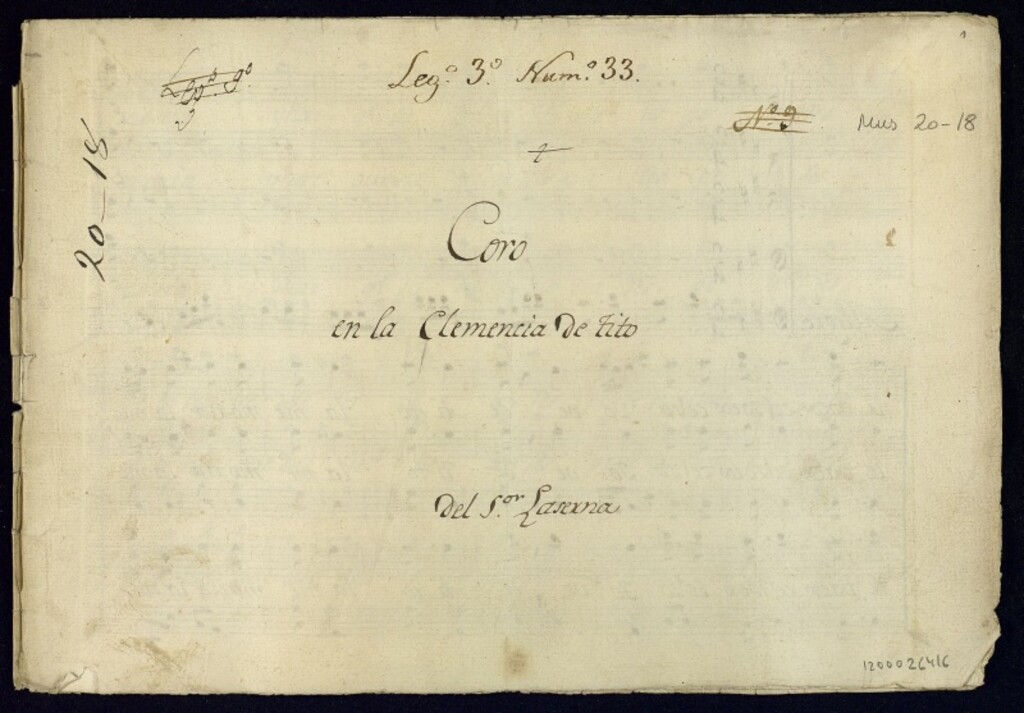 1
Leg.º 3.º Num.º 33.
Nº 9
Mus 20-18
20-18
Coro
en la Clemencia de tito
del S.or Laserna
1200026416